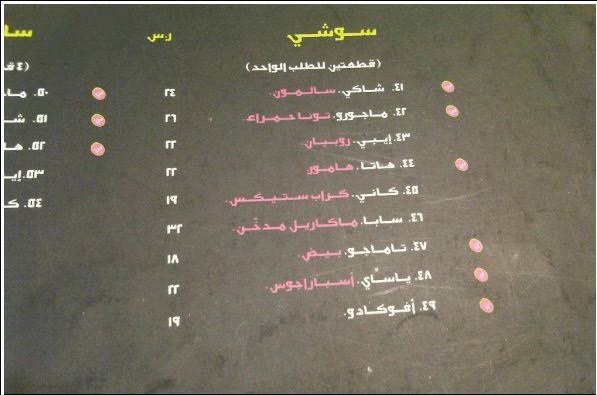 سوشي ر.س
(قطعتين للطلب الواحد)
٤١. شاكي. سالمون. ٢٤
٤٢. ماجورو. تونا حمراء. ٢٦
٤٣. إيبي. روبيان. ٢٢
٤٤. هاتا. هامور. ٢٢
٤٥. كاني. كراب ستيكس. ١٩
٤٦. سابا. ماكاريل مدخّن. ٣٢
٤٧. تاماجو. بيض. ١٨
٤٨. ياساي. أسباراجوس. ٢٢
٤٩. أفوكادو. ١٩
سا
(٤ ق
٥٠. ماج
٥١. ش
٥٢. ها
٥٣. إيـ
٥٤. ك